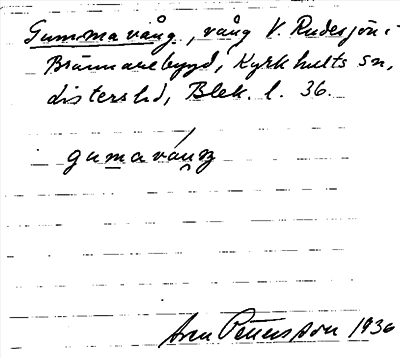 Gummavång, vång V. Rudesjön i
Brännarebygd, Kyrkhults sn,
Listers hd, Blek. l. 36.
gumavåuŋ
Pettersson 1936